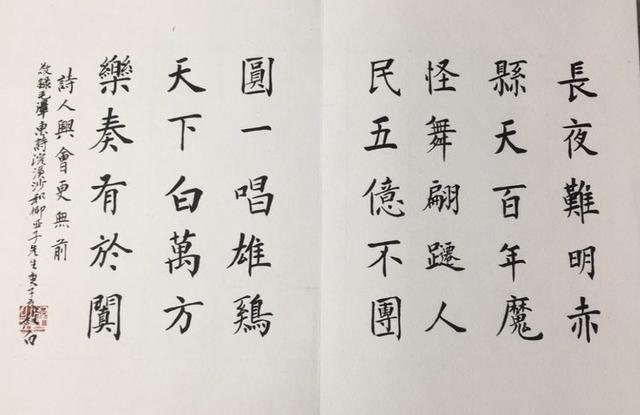 長夜難明赤
縣天百年魔
怪舞翩躚人
民五億不團
圓一唱雄鷄
天下白萬方
樂奏有於闐
詩人興會更無前
敬錄毛澤東詩浣溪沙和柳亞子先生庚子